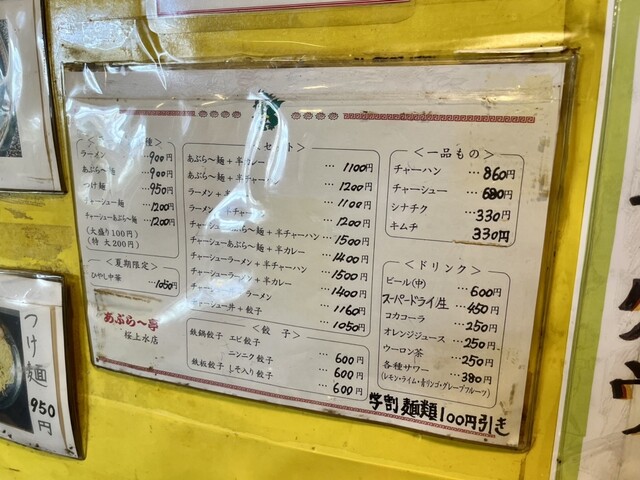 種 >
ラーメン … 900円
あぶら〜麺 … 900円
つけ麺 … 950円
チャーシュー麺 … 1200円
チャーシューあぶら〜麺 … 1200円
(大盛り100円)
(特大200円)
<夏期限定>
ひやし中華 … 1050円
あぶら〜亭
桜上水店
あぶら〜麺+半カレー … 1100円
あぶら〜麺+半チャ … 1200円
ラーメン+半 … 1100円
ラーメン+半チャー … 1200円
チャーシューあぶら〜麺+半チャーハン … 1500円
チャーシューあぶら〜麺+半カレー … 1400円
チャーシューラーメン+半チャーハン … 1500円
チャーシューラーメン+半カレー … 1400円
ラーメン … 1160円
チャーシュー丼+餃子 … 1050円
<餃子>
鉄鍋餃子 エビ餃子 … 600円
ニンニク餃子 … 600円
鉄板餃子 しそ入り餃子 … 600円
<一品もの>
チャーハン … 860円
チャーシュー … 680円
シナチク … 330円
キムチ 330円
<ドリンク>
ビール(中) … 600円
スーパードライ/生 … 450円
コカコーラ … 250円
オレンジジュース … 250円
ウーロン茶 … 250円
各種サワー … 380円
(レモン・ライム・青リンゴ・グレープフルーツ)
学割 麺類100円引き
つけ麺
950円